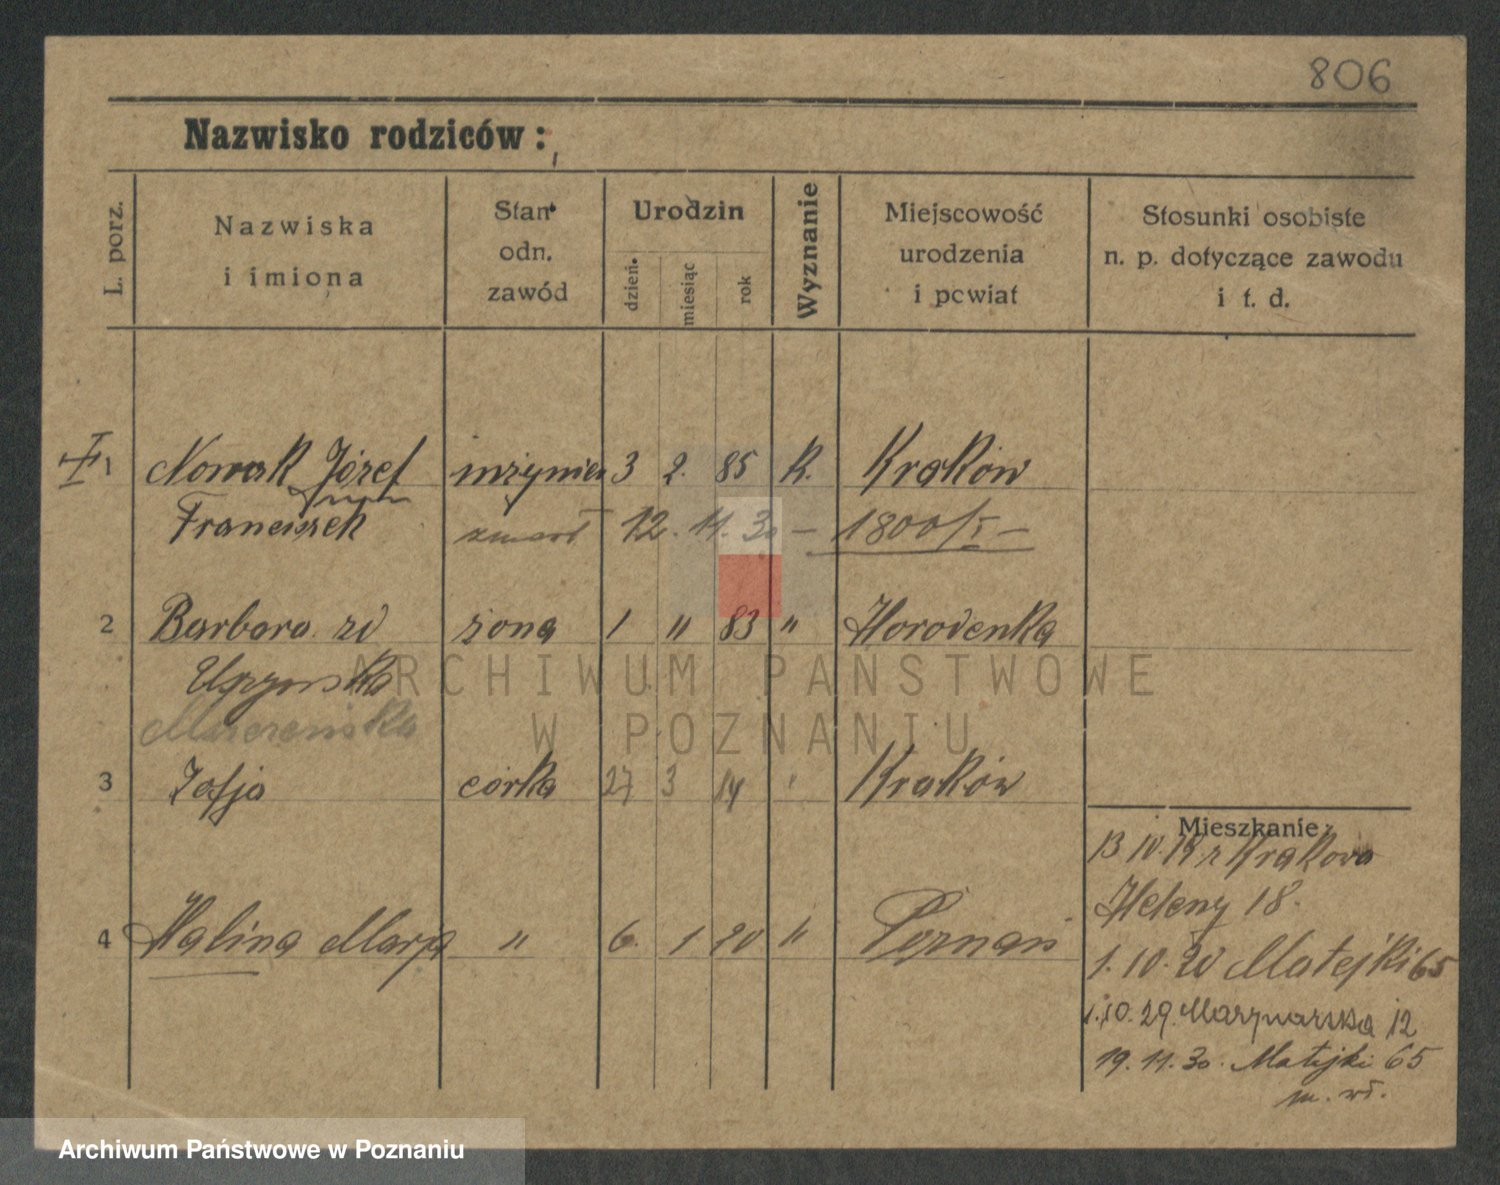 806
Nazwisko rodziców:
L. porz.
Nazwiska
i imiona
Stan
odn.
zawód
Urodzin
dzień
miesiąc
rok
Wyznanie
Miejscowość
urodzenia
i powiat
Stosunki osobiste
n. p. dotyczące zawodu
i t. d.
1 Nowak Józef inżynier 3 2. 85 R. Kraków
Franciszek zmarł 12. 11. 30 – 1800/I –
2 Barbara zd żona 1 " 83 " Horodenka
ARCHIWUM PAŃSTWOWE
W POZNANIU
3 Zofja córka 27 3 14 " Kraków
Mieszkanie
13 10. 19 z Krakowa
Heleny 18.
4 Halina Marja " 6. 1 20 " Poznań
1. 10. 20 Matejki 65
1.10.29. Marynarska 12
19. 11. 30. Matejki 65
m. wł.
Archiwum Państwowe w Poznaniu